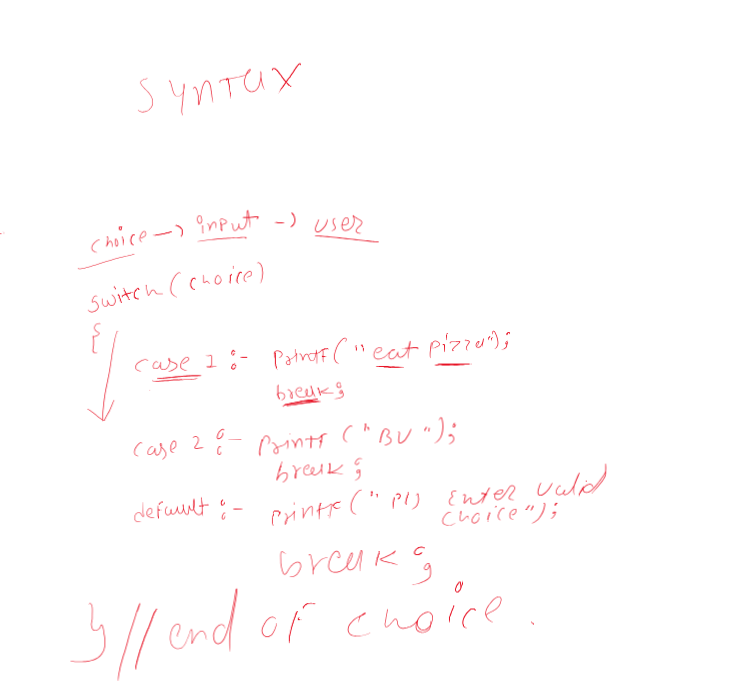 SYNTAX
choice -> input -> user
switch(choice)
{
case 1 :- printf("eat pizza");
break;
case 2 :- printf("BU");
break;
default :- printf("Pl) Enter valid
choice");
break;
}//end of choice.